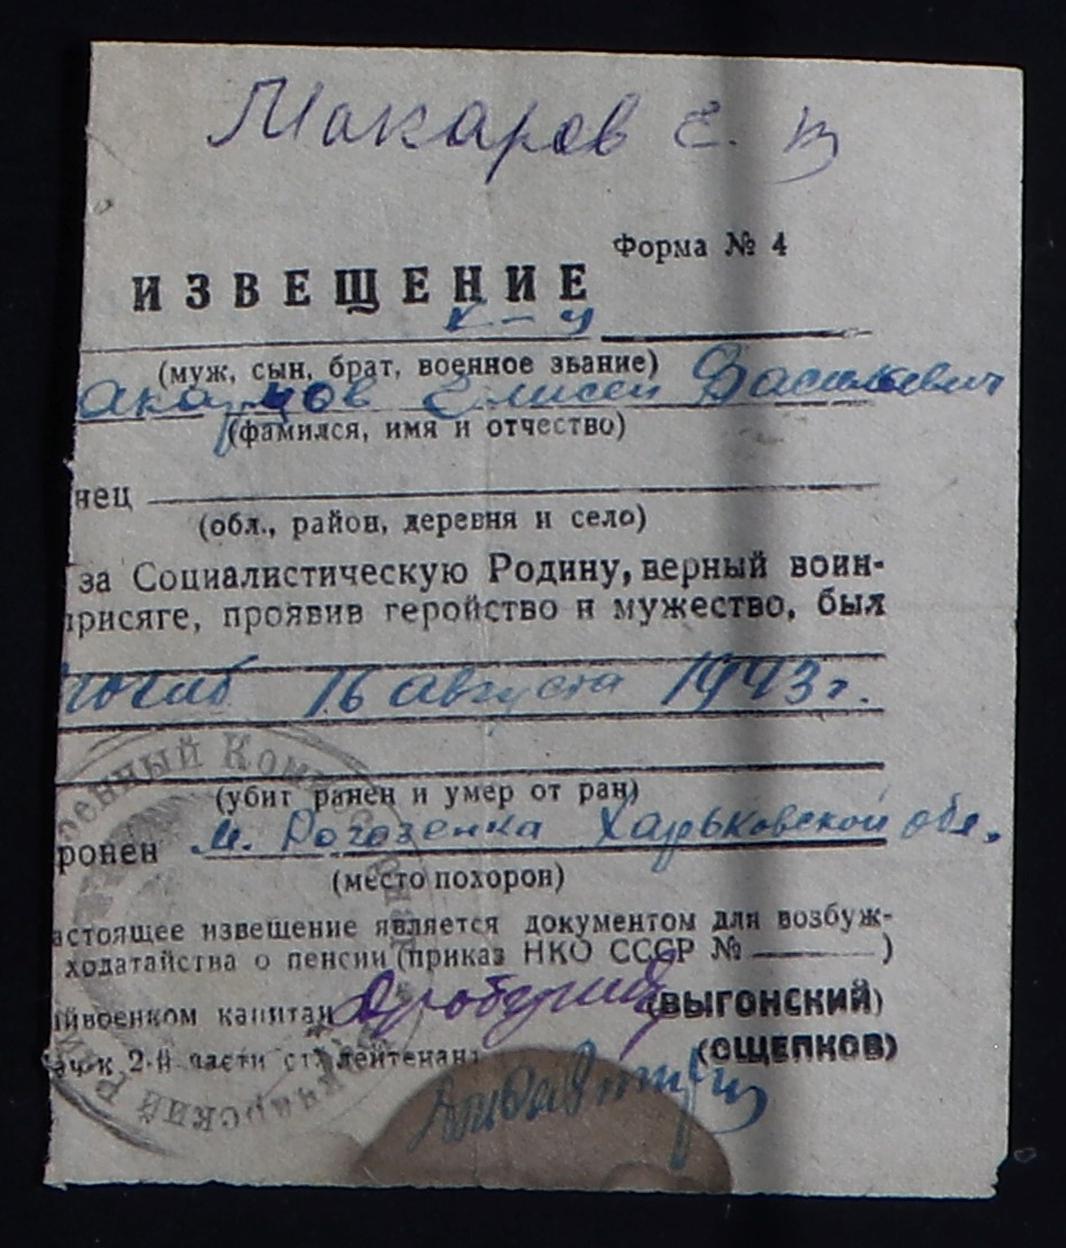 Макаров Е. В
Форма № 4
ИЗВЕЩЕНИЕ
к-ц
(муж, сын, брат, военное звание)
акаров Елисей Васильевич
(фамился, имя и отчество)
нец
(обл., район, деревня и село)
за Социалистическую Родину, верный воин-
присяге, проявив геройство и мужество, был
погиб 16 августа 1943 г.
(убит ранен и умер от ран)
ронен м. Рогозенка Харьковской обл.
(место похорон)
астоящее извещение является документом для возбуж-
ходатайства о пенсии (приказ НКО СССР № )
йвоенком капитан (ВЫГОНСКИЙ)
ач-к 2-й части ст. лейтенант (ОЩЕПКОВ)
военный Ком